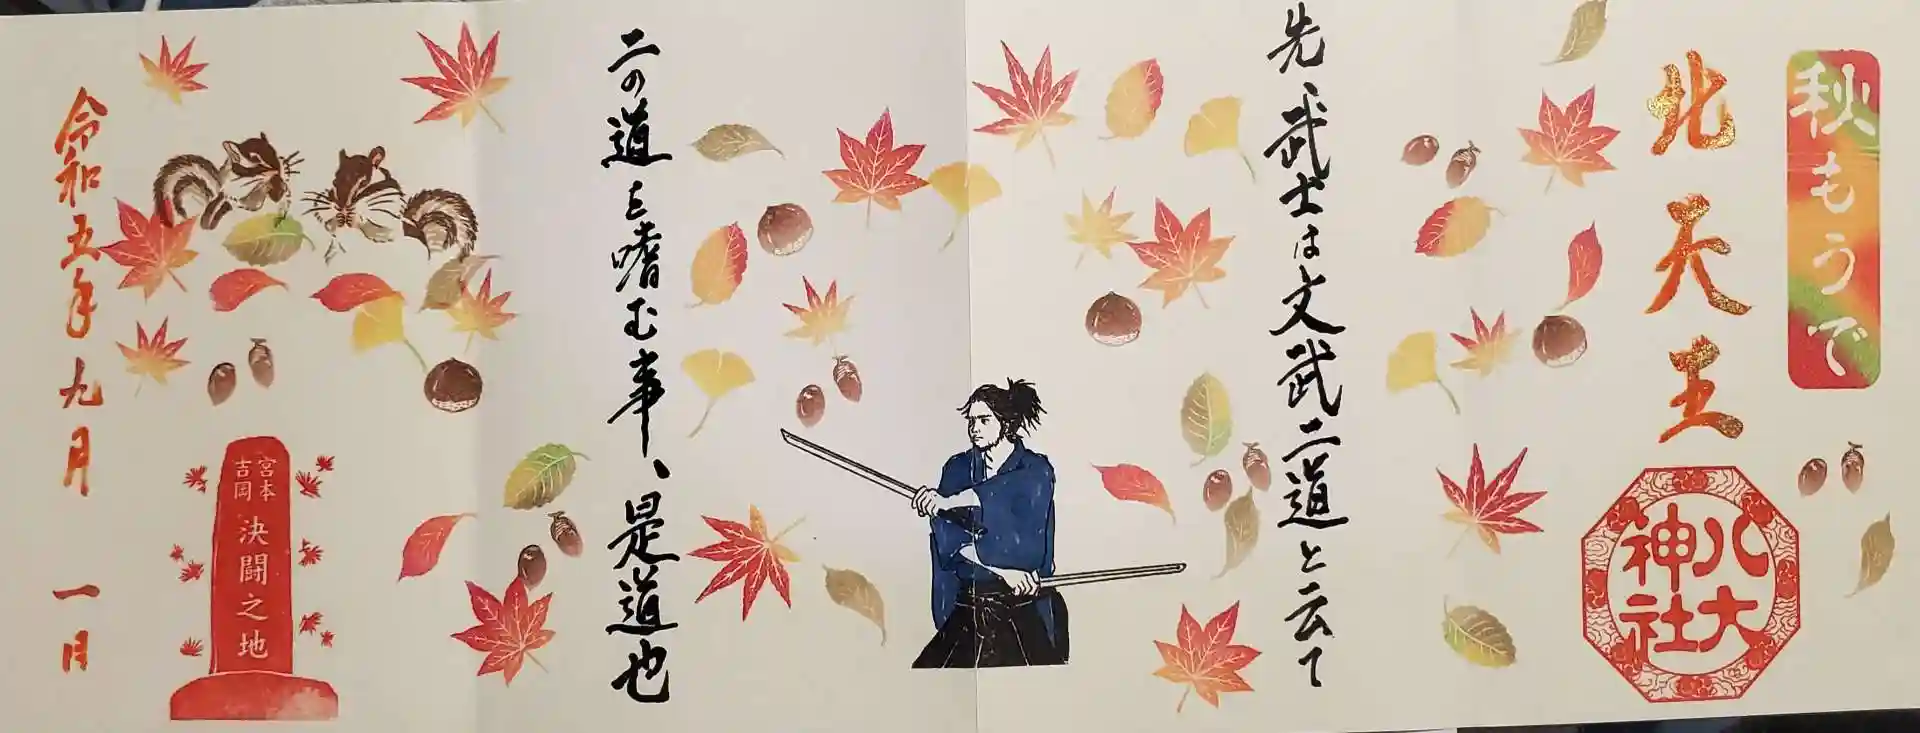 秋もうで
北天王
八大
神社
先、武士は文武二道と云て
二の道を嗜む事、是道也
宮本
吉岡
決闘之地
令和五年九月一日